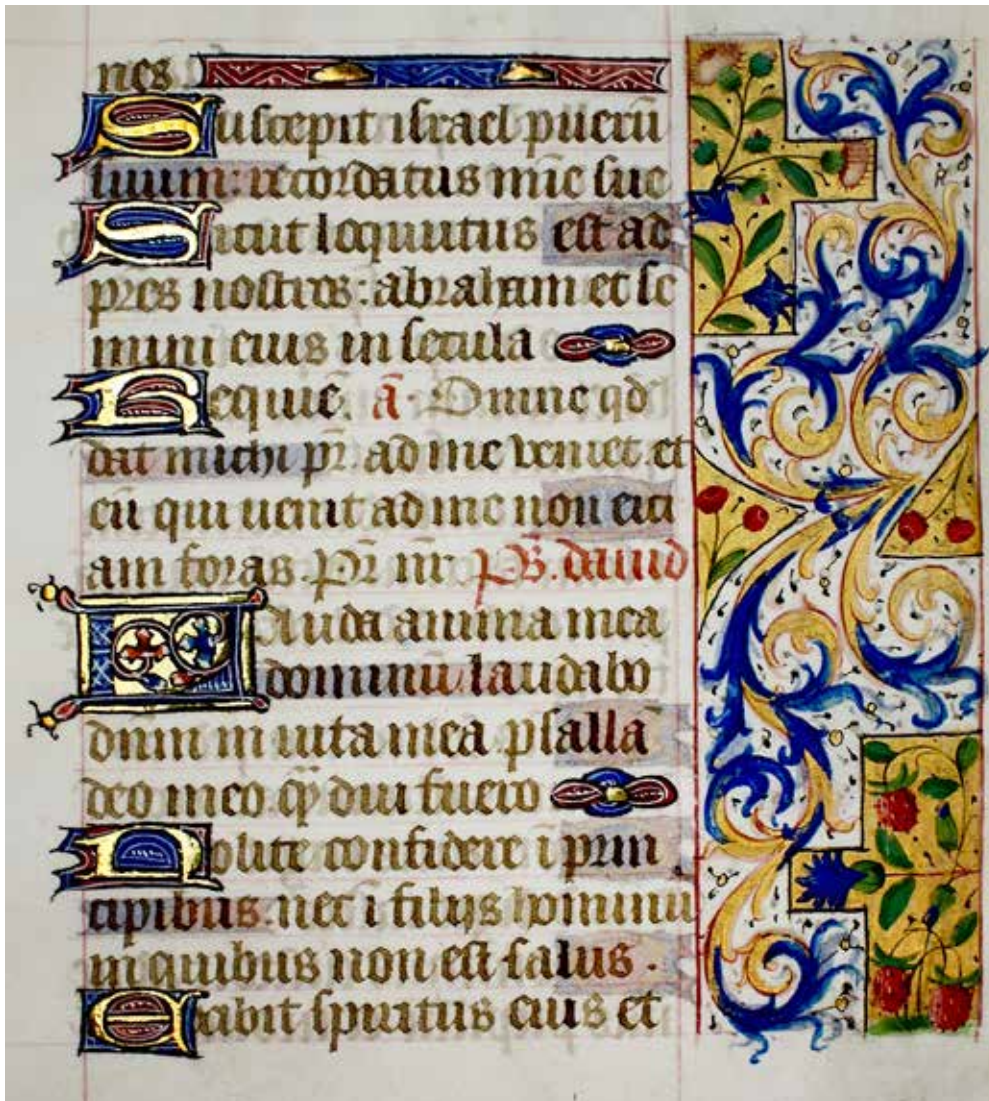 nes
Suscepit israel pueru᷑
suum: recordatus mīe sue
Sicut loquutus est ad
pres nostros: abraham et se
mini eius in secula
Requiē. ā. Omne qd
dat michi pr̄. ad me veniet. et
eū qui uenit ad me non eici
am foras. Pr̄ nr̄ ps̄. dauid
Lauda anima mea
dominū. laudabo
dnm in uita mea psallā
deo meo. qȝ diu fuero
Nolite confidere ī prin
cipibus. nec ī filijs hominū
in quibus non est salus.
Exibit spiritus eius et